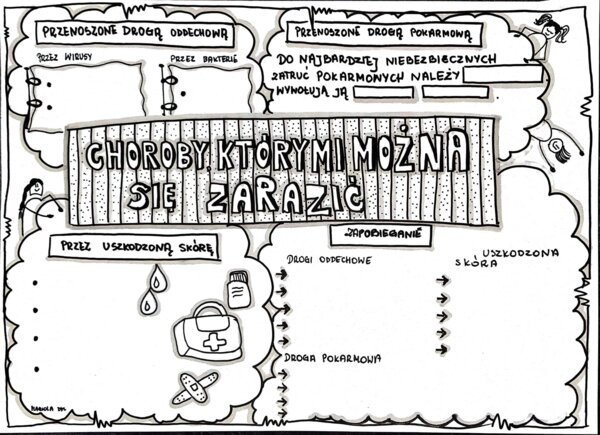 PRZENOSZONE DROGĄ ODDECHOWĄ
PRZEZ WIRUSY
PRZEZ BAKTERIE
PRZENOSZONE DROGĄ POKARMOWĄ
DO NAJBARDZIEJ NIEBEZBIECZNYCH
ZATRUĆ POKARMONYCH NALEŻY
WYWOŁUJĄ JĄ
CHOROBY, KTÓRYMI MOŻNA
SIĘ ZARAZIĆ
PRZEZ USZKODZONĄ SKÓRĘ
ZAPOBIEGANIE
DROGI ODDECHOWE
USZKODZONA
SKÓRA
DROGA POKARMOWA